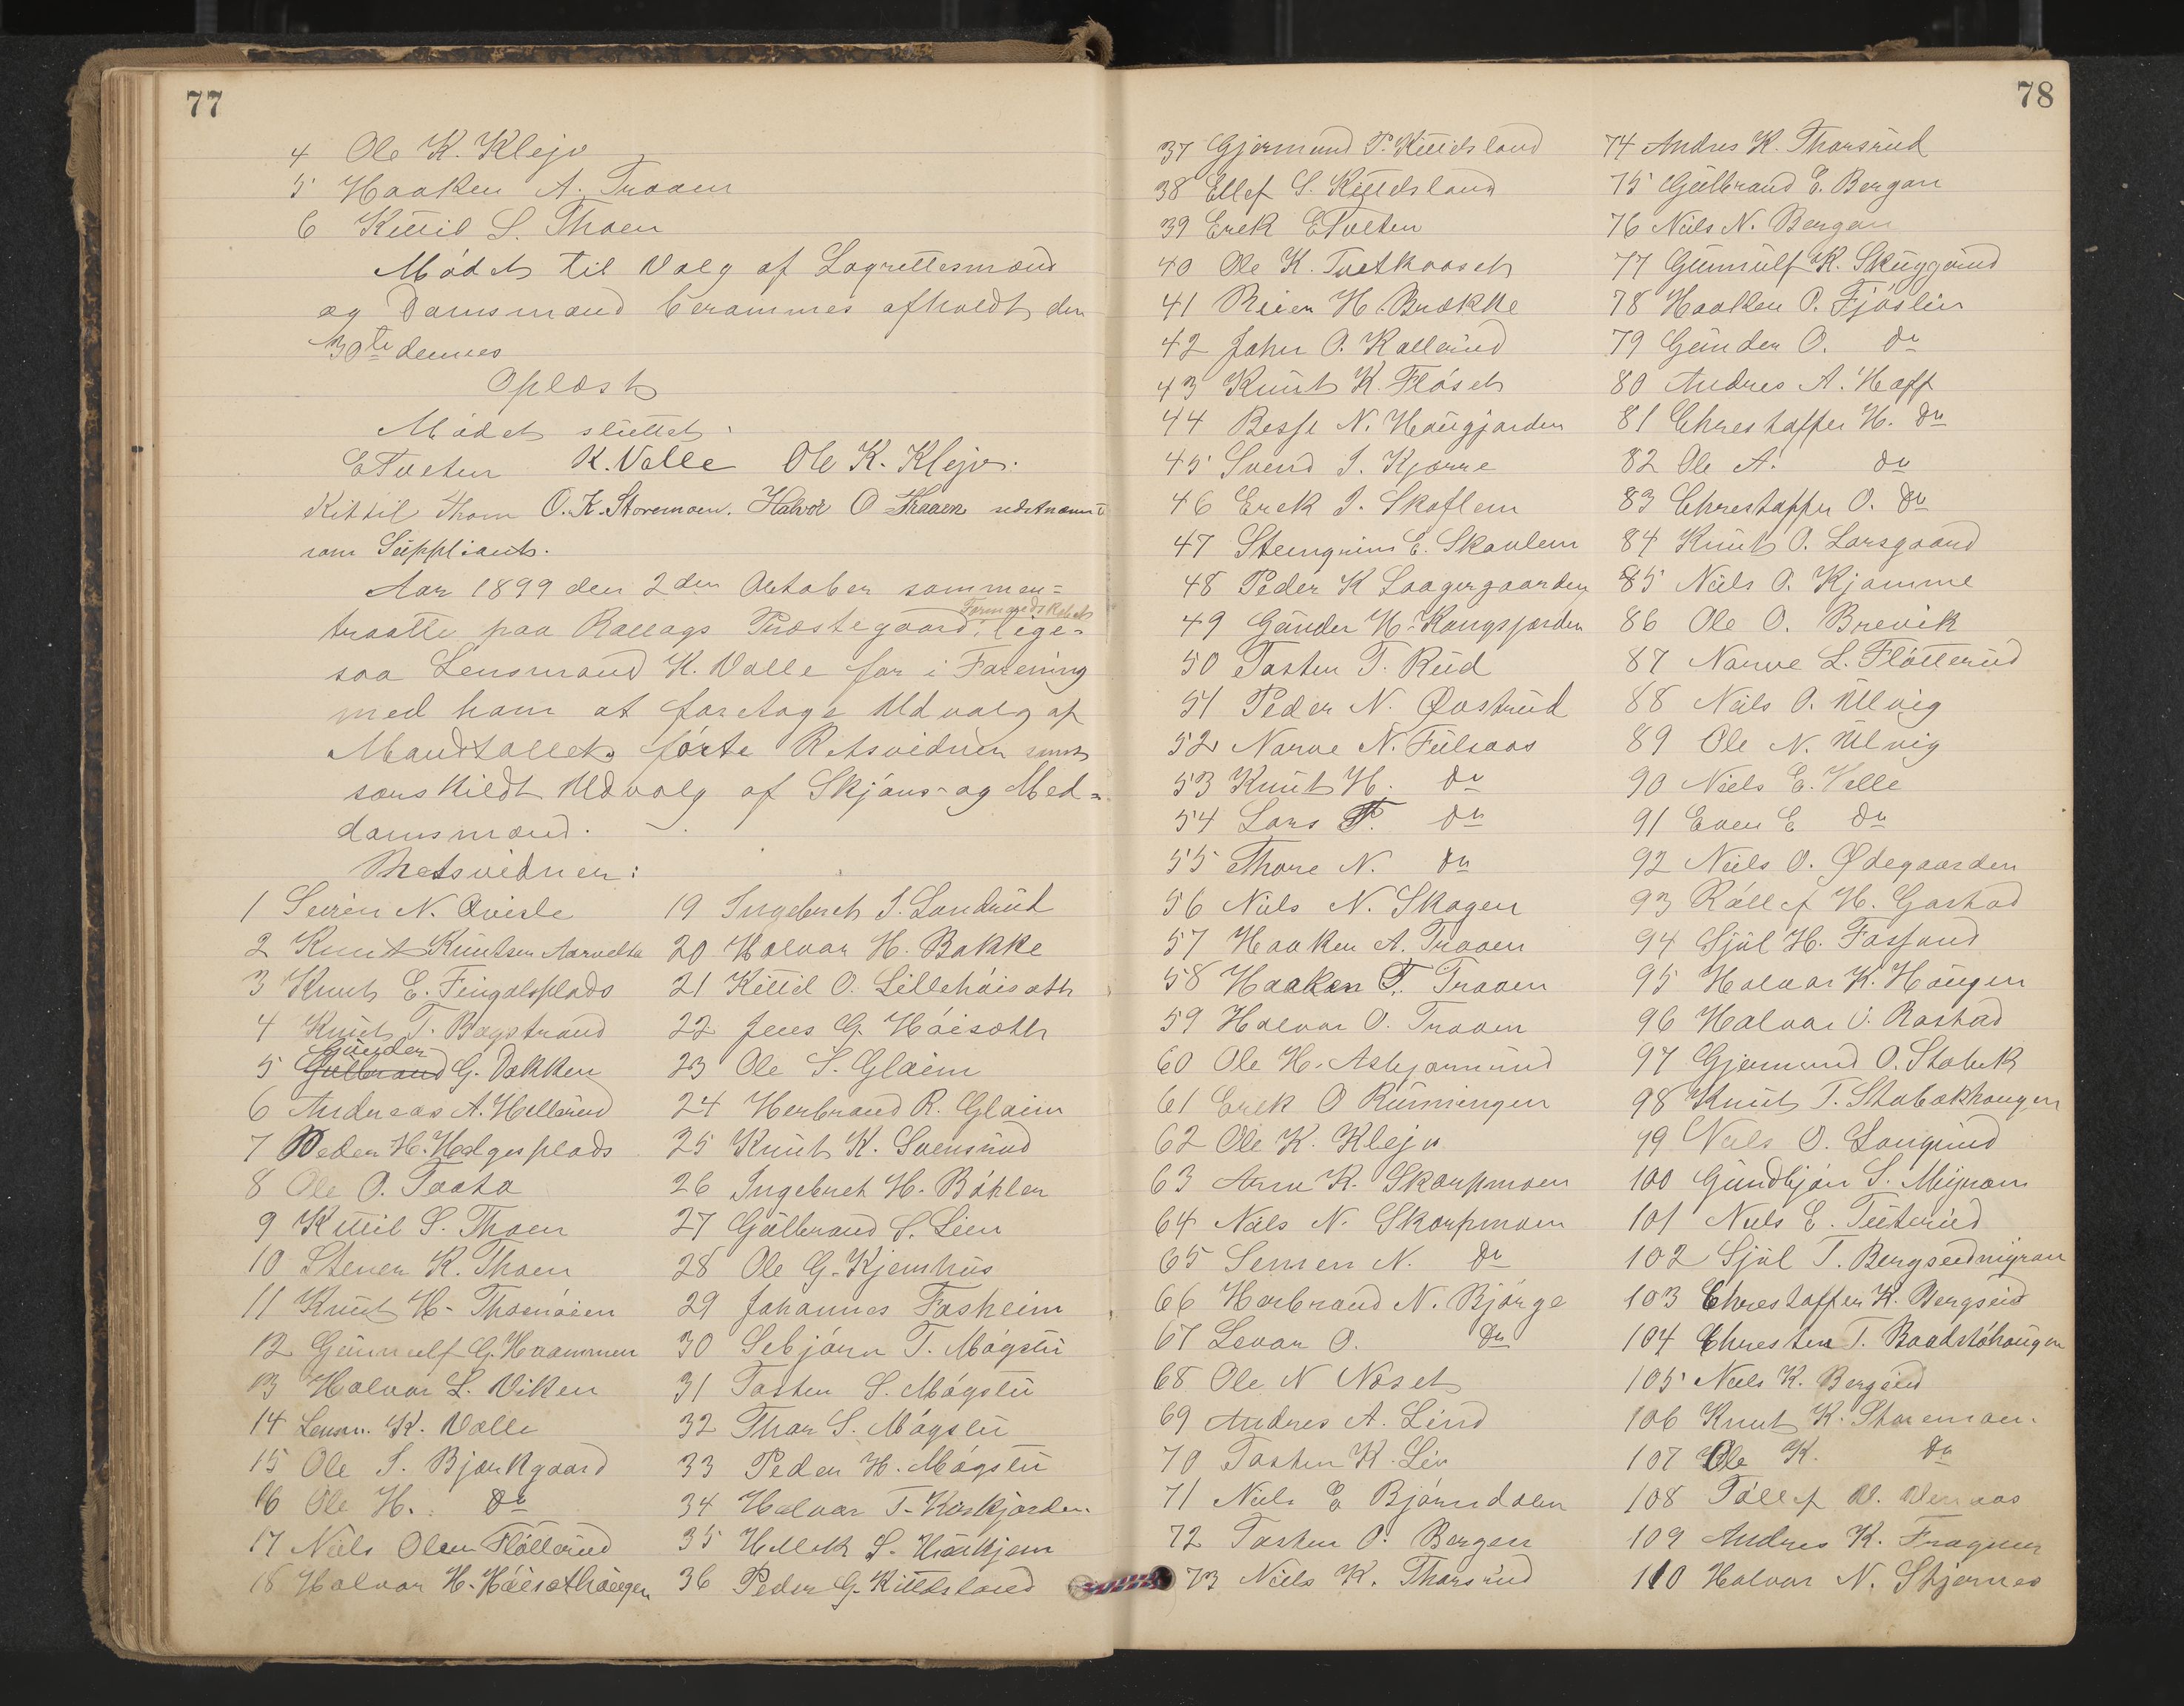 77
4 Ole K. Klejv
5 Haaken A. Traaen
6 Kittil S. Thoen
Mødet til Valg af Lagrettesmænd
og Domsmænd berammes afholdt den
30te dennes
Oplæst
Mødet sluttet.
E Tveten K. Valle Ole K. Klejv.
Kittil Thoen O. K. Storemoen. Halvor O Traaen
som Suppliant.
Aar 1899 den 2den Oktober sammen=
traatte paa Rollags Præstegaard Formandskabet, lige=
saa Lensmand K. Valle for i Forening
med ham at foretage Udvalg af
Mandtallets førte Retsvidner samt
særskildt Udvalg af Skjøns- og Med=
domsmænd.
Retsvidner:
1 Søren N. Qvisle
2 Knut Knutsen Aarvelta
3 Knut E. Fingalsplads
4 Knut T. Bagstrand
5 Gulbrand Gunder G. Bakken
6 Andreas A. Hellerud
7 Peder H. Helgesplads
8 Ole O. Taata
9 Kittil S. Thoen
10 Stener K. Thoen
11 Knut H. Thoenøien
12 Gunnulf G. Haammen
13 Halvor L. Viken
14 Lensm. K. Valle
15 Ole S. Bjørkgaard
16 Ole H. do
17 Niels Olsen Fløtterud
18 Halvor H. Høisæthaugen
19 Ingebret S. Landrud
20 Halvor H. Bakke
21 Kittil O. Lillehøisæth
22 Jens G. Høisæth
23 Ole S. Glaim
24 Herbrand R. Glaim
25 Knut K. Svensrud
26 Ingebret H. Bøhler
27 Gulbrand S. Lien
28 Ole G. Kjemhus
29 Johannes Fosheim
30 Sebjørn T. Møgstu
31 Tosten S. Møgstu
32 Thor S. Møgstu
33 Peder H. Møgstu
34 Halvor T. Kirkjorden
35 Hellek S.
36 Peder G. Kittelsland
78
37 Gjermund P. Kittelsland
38 Ellef S. Kittelsland
39 Erek E Tveten
40 Ole K. Tvetkaaset
41 Reier H. Brække
42 Johen O. Kollerud
43 Knut K. Flåset
44 Besse N. Haugjorden
45 Svend S. Kjørre
46 Erek S. Skaflem
47 Steingrim E. Skavlem
48 Peder K Laagergaarden
49 Gunder H. Kongsjorden
50 Tosten T. Rud
51 Peder N. Qvstrud
52 Narve N. Fulsaas
53 Knut H. do
54 Lars T. do
55 Thore N. do
56 Niels N. Skagen
57 Haaken A. Traaen
58 Haaken T. Traaen
59 Halvor O. Traaen
60 Ole H. Asbjørnrud
61 Erek O Runningen
62 Ole K. Klejv
63 Arne K. Skarpmoen
64 Niels N. Skarpmoen
65 Semen N. do
66 Herbrand N. Bjørge
67 Levor O. do
68 Ole N Næset
69 Andres A. Lind
70 Tosten K. Liv
71 Niels E Bjørndalen
72 Tosten O. Bergan
73 Niels K. Thorsrud
74 Andres K. Thorsrud
75 Gulbrand E. Bergan
76 Niels N. Bergan
77 Gunnulf K. Skuggerud
78 Haaken O. Fjøslien
79 Gunder O. do
80 Andres A. Hoff
81 Chrestoffer H. do
82 Ole A. do
83 Chrestoffer O. do
84 Knut O. Larsgaard
85 Niels O. Kjomme
86 Ole O. Brevik
87 Narve L. Fløtterud
88 Niels O. Ulvig
89 Ole N. Ulvig
90 Niels E. Velle
91 Even E do
92 Niels O. Ødegaarden
93 Rollef H. Gaastad
94 Sjul H. Fosfand
95 Halvor K. Haugen
96 Halvor O. Rastad
97 Gjermund O. Stabæk
98 Knut T. Stabækhaugen
99 Niels O. Langrud
100 Gundbjør S. Myran
101 Niels E. Tuterud
102 Sjul T. Bergseidmyran
103 Chrestoffer K. Bergseid
104 Chresten T. Baadstøhaugen
105 Niels K. Bergseid
106 Knut K. Storemoen.
107 Ole K. do
108 Tollef O. Vernaas
109 Andres K. Frøgner
110 Halvor N. Stjernes